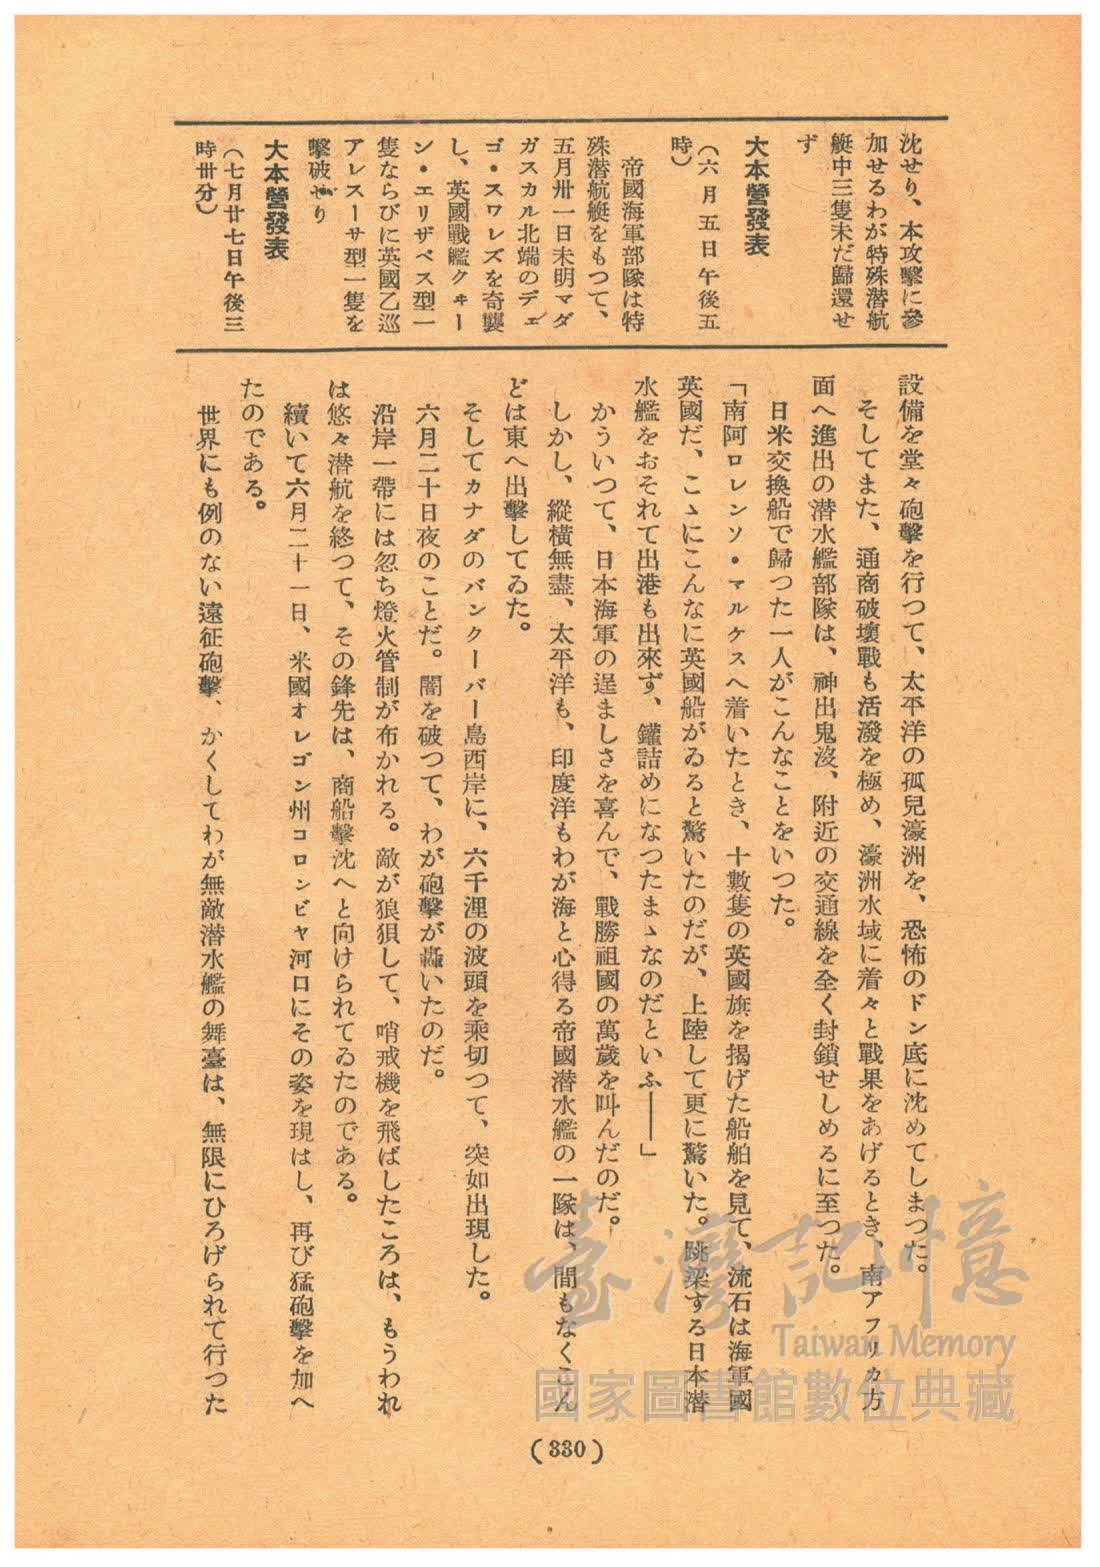 沈せり、本攻擊に參
加せるわが特殊潛航
艇中三隻未だ歸還せ
ず
大本營發表
（六月五日午後五
時）
帝國海軍部隊は特
殊潛航艇をもつて、
五月卅一日未明マダ
ガスカル北端のディエ
ゴ・スワレズを奇襲
し、英國戰艦クヰー
ン・エリザベス型一
隻ならびに英國乙巡
アレスーサ型一隻を
擊破せり
大本營發表
（七月廿七日午後三
時卅分）
設備を堂々砲擊を行つて、太平洋の孤兒濠洲を、恐怖のドン底に沈めてしまつた。
そしてまた、通商破壞戰も活潑を極め、濠洲水域に着々と戰果をあげるとき、南アフリカ方
面へ進出の潛水艦部隊は、神出鬼沒、附近の交通線を全く封鎖せしめるに至つた。
日米交換船で歸つた一人がこんなことをいつた。
「南阿ロレンソ・マルケスへ着いたとき、十數隻の英國旗を揭げた船舶を見て、流石は海軍國
英國だ、こゝにこんなに英國船がゐると驚いたのだが、上陸して更に驚いた。跳梁する日本潛
水艦をおそれて出港も出來ず、罐詰めになつたまゝなのだといふ――」
かういつて、日本海軍の逞ましさを喜んで、戰勝祖國の萬歲を叫んだのだ。
しかし、縱橫無盡、太平洋も、印度洋もわが海と心得る帝國潛水艦の一隊は、間もなくこん
どは東へ出擊してゐた。
そしてカナダのバンクーバー島西岸に、六千浬の波頭を乘切つて、突如出現した。
六月二十日夜のことだ。闇を破つて、わが砲擊が轟いたのだ。
沿岸一帶には忽ち燈火管制が布かれる。敵が狼狽して、哨戒機を飛ばしたころは、もうわれ
は悠々潛航を終つて、その鋒先は、商船擊沈へと向けられてゐたのである。
續いて六月二十一日、米國オレゴン州コロンビヤ河口にその姿を現はし、再び猛砲擊を加へ
たのである。
世界にも例のない遠征砲擊、かくしてわが無敵潛水艦の舞臺は、無限にひろげられて行つた
（330）
臺灣記憶
Taiwan Memory
國家圖書館數位典藏